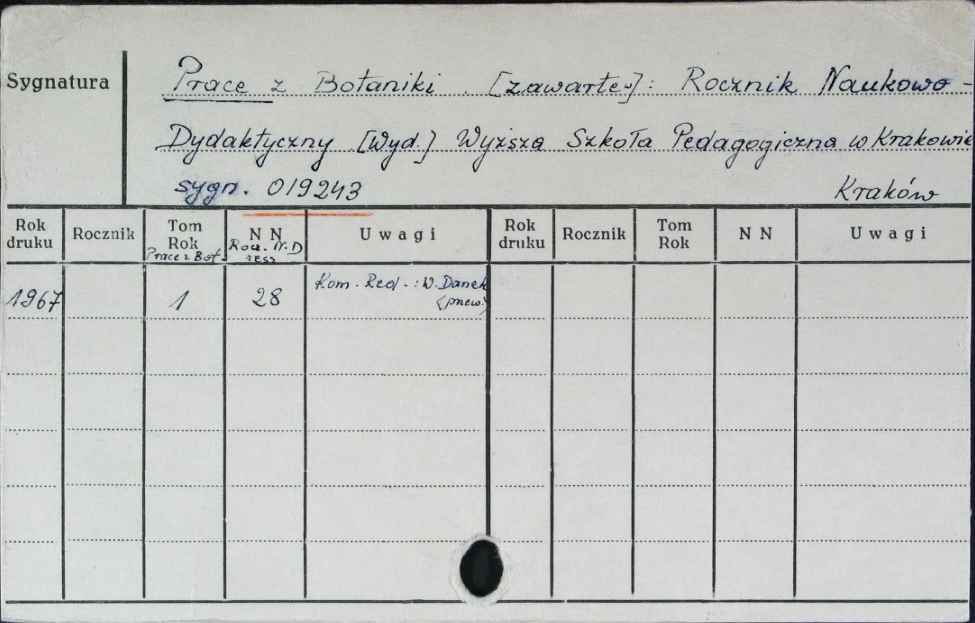 Sygnatura
Prace z Botaniki. [zawarte w]: Rocznik Naukowo-
Dydaktyczny. [Wyd.] Wyższa Szkoła Pedagogiczna w Krakowie
sygn. 019243 Kraków
Rok druku Rocznik Tom Rok N N Uwagi Rok druku Rocznik Tom Rok N N Uwagi
Prace z Bot. Rocz. N.D
zesz
1967 1 28 Kom. Red. : W. Danek